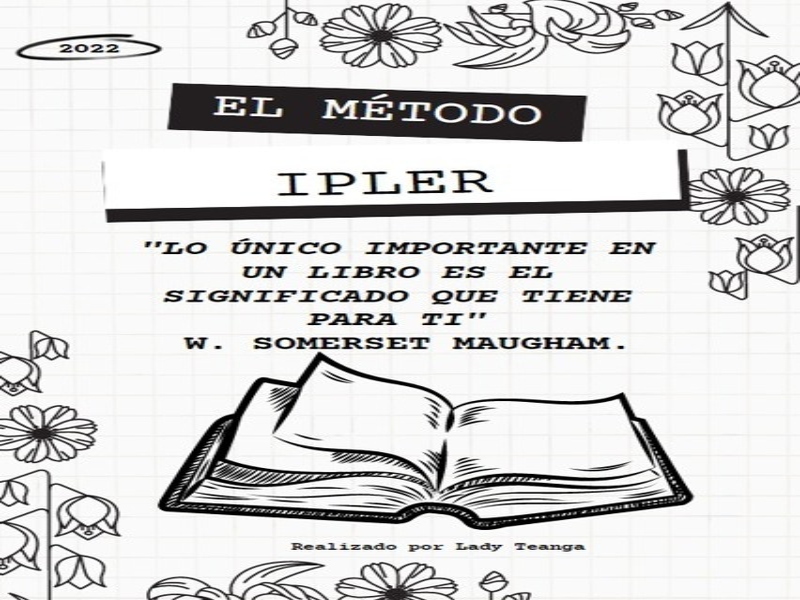 2022
EL MÉTODO
IPLER
"LO ÚNICO IMPORTANTE EN
UN LIBRO ES EL
SIGNIFICADO QUE TIENE
PARA TI"
W. SOMERSET MAUGHAM.
Realizado por Lady Teanga